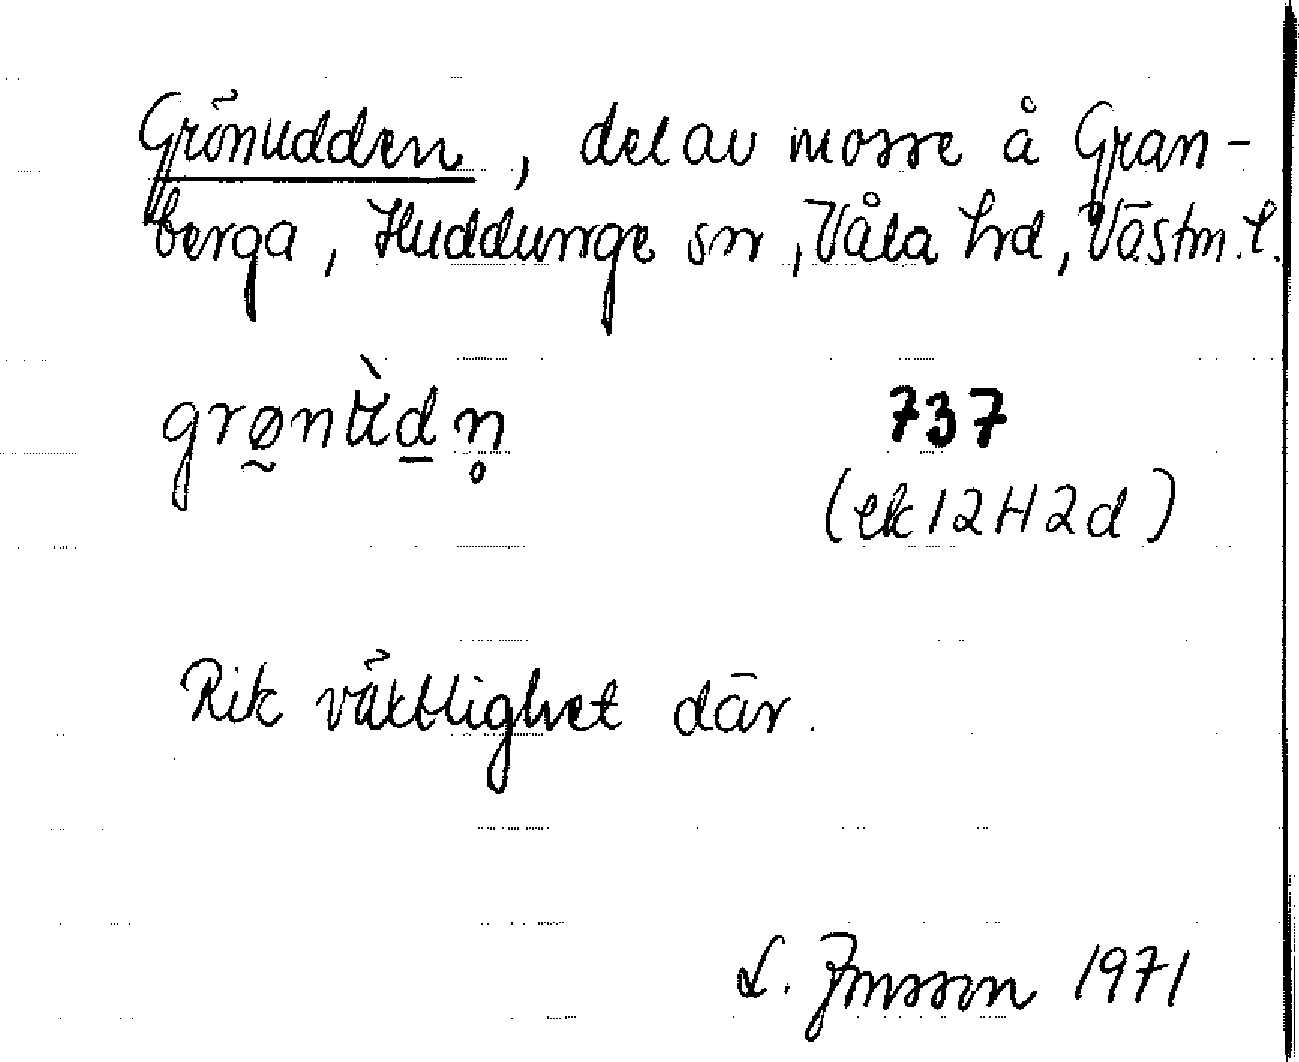 Grönudden, del av mosse å Gran-
berga, Huddunge sn, Våla hd, Västm. l.
737
(ek 12H2d)
Rik växtlighet där.
L. Jonsson 1971